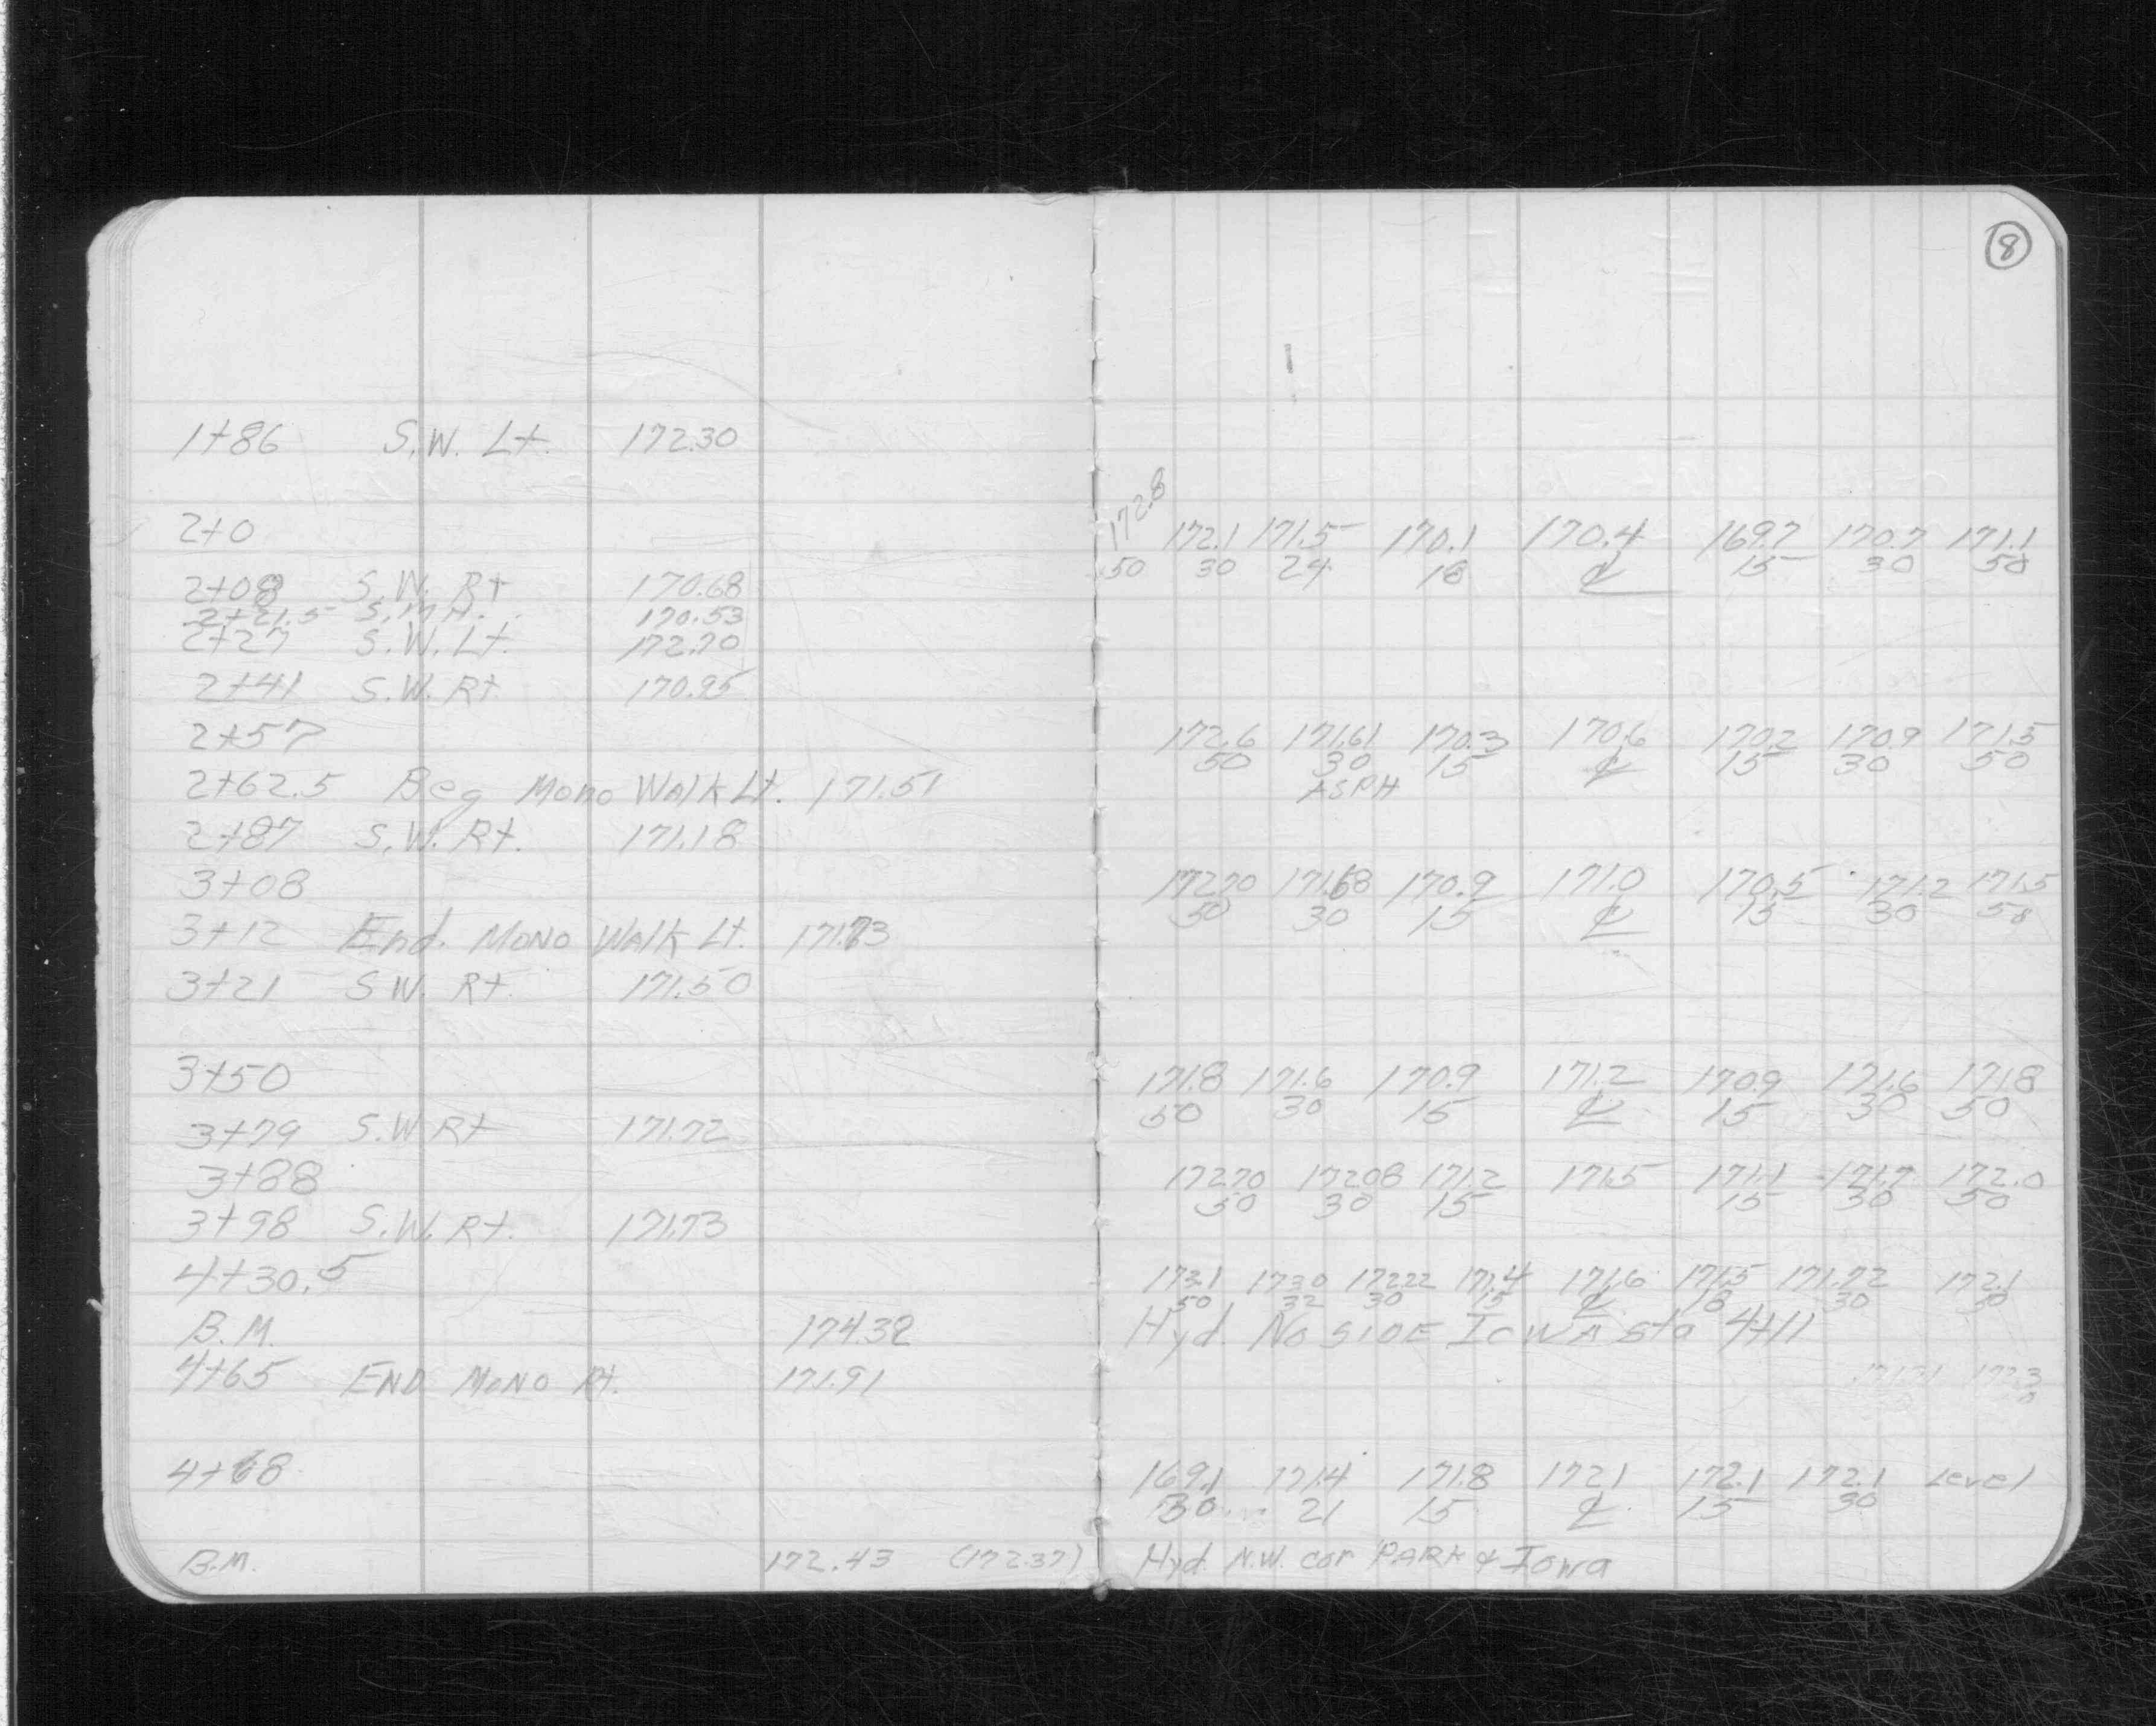 8
1+86 S.W. Lt. 172.30
172.8
2+0 172.1 171.5 170.1 170.4 169.7 170.7 171.1
50 30 24 18 ℄ 15 30 50
2+08 S.W. Rt 170.68
2+21.5 S.M.H. 170.53
2+27 S.W. Lt. 172.70
2+41 S.W. Rt 170.95
2+57 172.6 171.61 170.3 170.6 170.2 170.9 171.5
50 30 15 ℄ 15 30 50
ASPH
2+62.5 Beg Mono Walk Lt. 171.51
2+87 S.W. Rt. 171.18
3+08 172.70 171.68 170.9 171.0 170.5 171.2 171.5
50 30 15 ℄ 15 30 50
3+12 End. Mono Walk Lt.
3+21 S.W. Rt. 171.50
3+50 171.8 171.6 170.9 171.2 170.9 171.6 171.8
50 30 15 ℄ 15 30 50
3+79 S.W Rt 171.72
3+88 172.70 172.08 171.2 171.5 171.1 171.7 172.0
50 30 15 15 30 50
3+98 S.W. Rt. 171.73
4+30.5 173.1 173.0 172.22 171.4 171.6 171.5 171.72 172.1
50 32 30 15 ℄ 18 30 50
B.M. 174.32 Hyd. No SIDE IOWA sta 4+11
4+65 END MONO Rt. 171.91 172.3
4+68 169.1 171.4 171.8 172.1 172.1 172.1 Level
30 21 15 ℄ 15 30
B.M. 172.43 (172.37) Hyd. N.W. cor PARK & Iowa